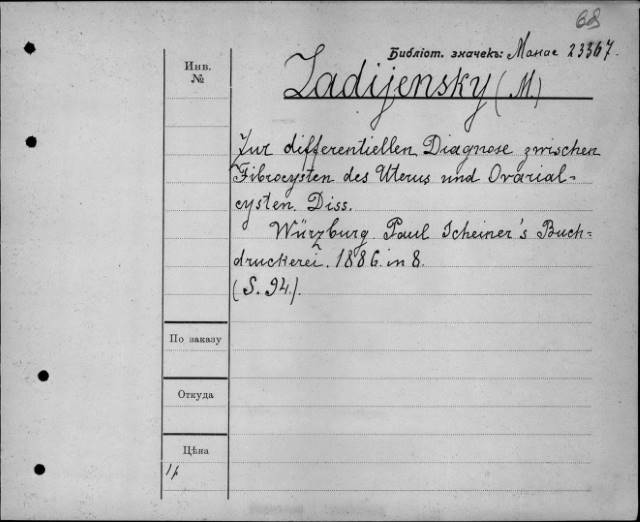 68
Библіот. значекъ: Манас 23367.
Инв.
№
Ladijensky (M.)
Zur differentiellen Diagnose zwischen
Fibrocysten des Uterus und Ovarial-
cysten. Diss.
Würzburg. Paul Scheiner's Buch-
druckerei. 1886. in 8.
(S. 94).
По заказу
Откуда
Цѣна
1р